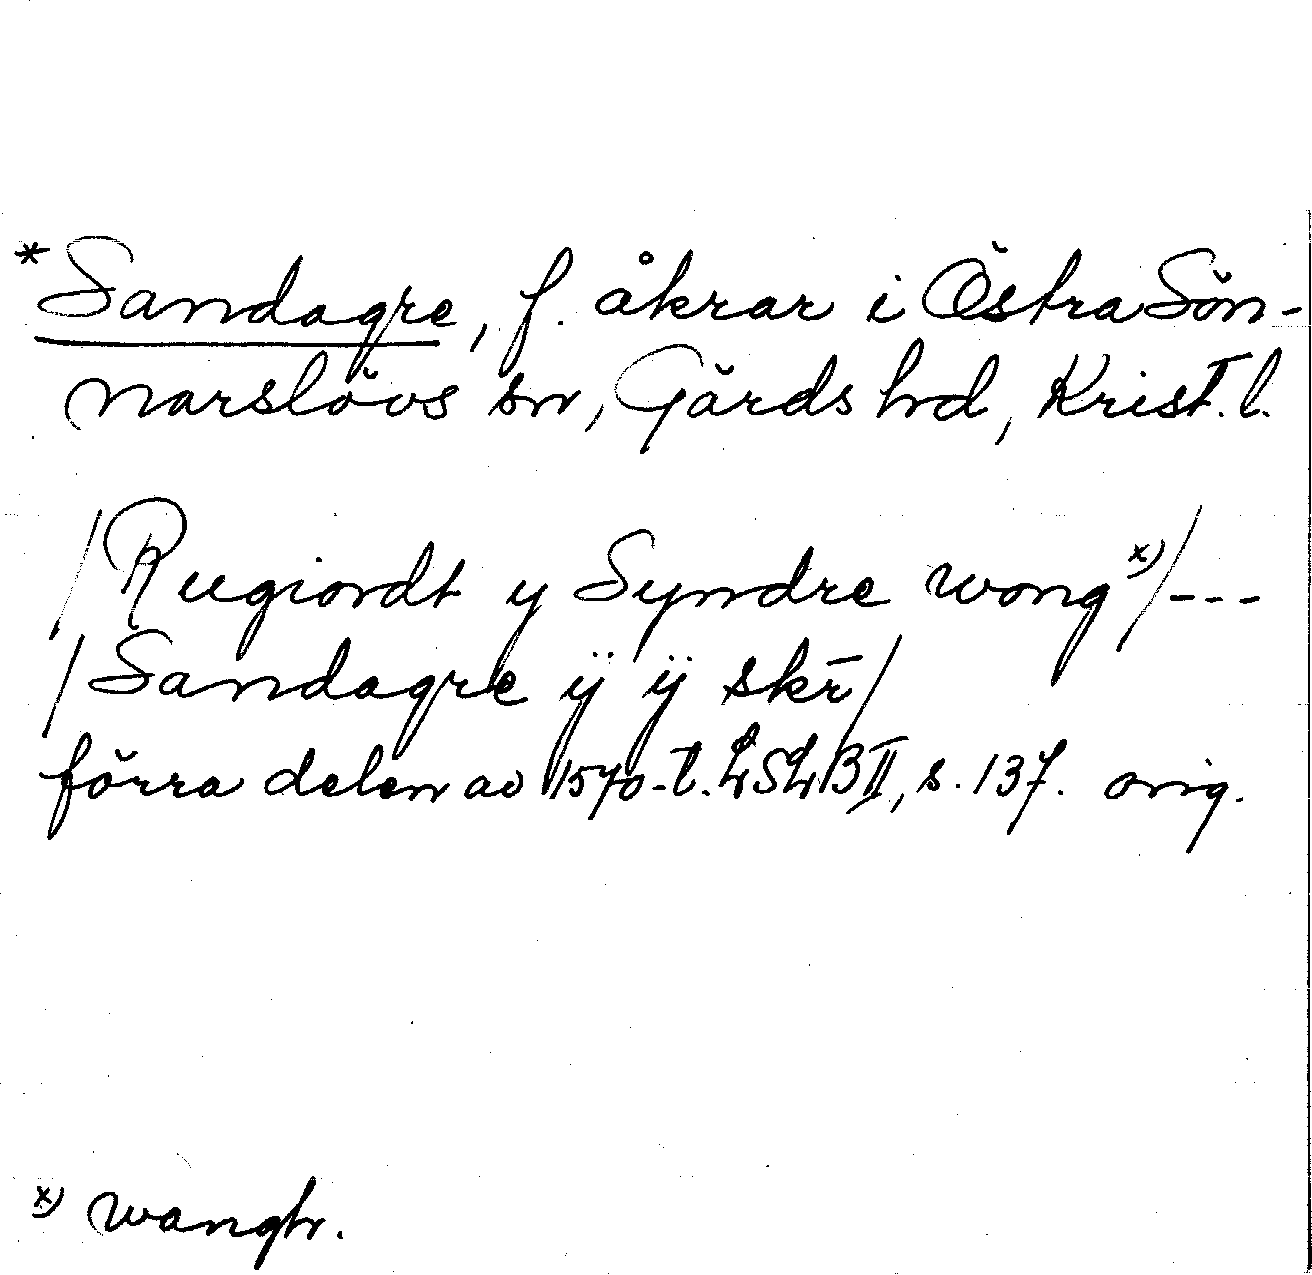 *Sandagre, f. åkrar i Östra Sön-
narslövs sn, Gärds hd, Krist. l.
/Rugiordt y Syndre wong x)/---
/Sandagre ÿ ÿ skr̄/
förra delen av 1570-t. LSLB II, s. 137. orig.
x) wangh.